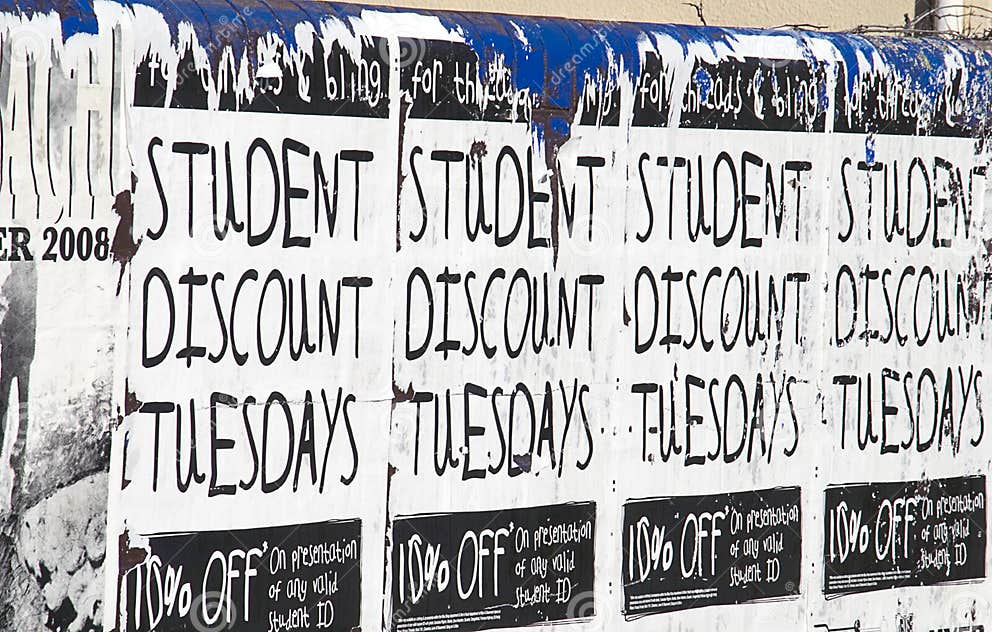 for threads & bling
STUDENT STUDENT STUDENT STUDENT
DISCOUNT DISCOUNT DISCOUNT DISCOUNT
TUESDAYS TUESDAYS TUESDAYS TUESDAYS
ER 2008
10% OFF* On presentation of any valid student ID
10% OFF* On presentation of any valid student ID
10% OFF* On presentation of any valid student ID
10% OFF* On presentation of any valid student ID